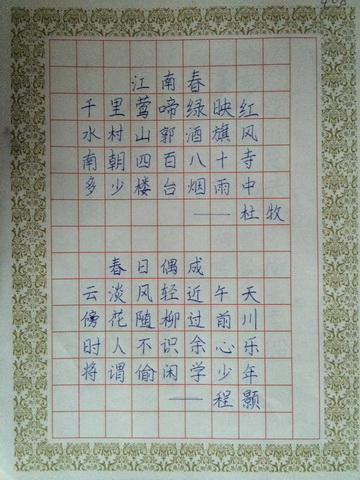 江南春
千里莺啼绿映红
水村山郭酒旗风
南朝四百八十寺
多少楼台烟雨中
——杜牧
春日偶成
云淡风轻近午天
傍花随柳过前川
时人不识余心乐
将谓偷闲学少年
——程颢